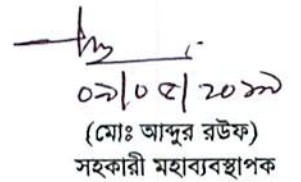 ০৯/০৫/২০১৯
(মোঃ আব্দুর রউফ)
সহকারী মহাব্যবস্থাপক